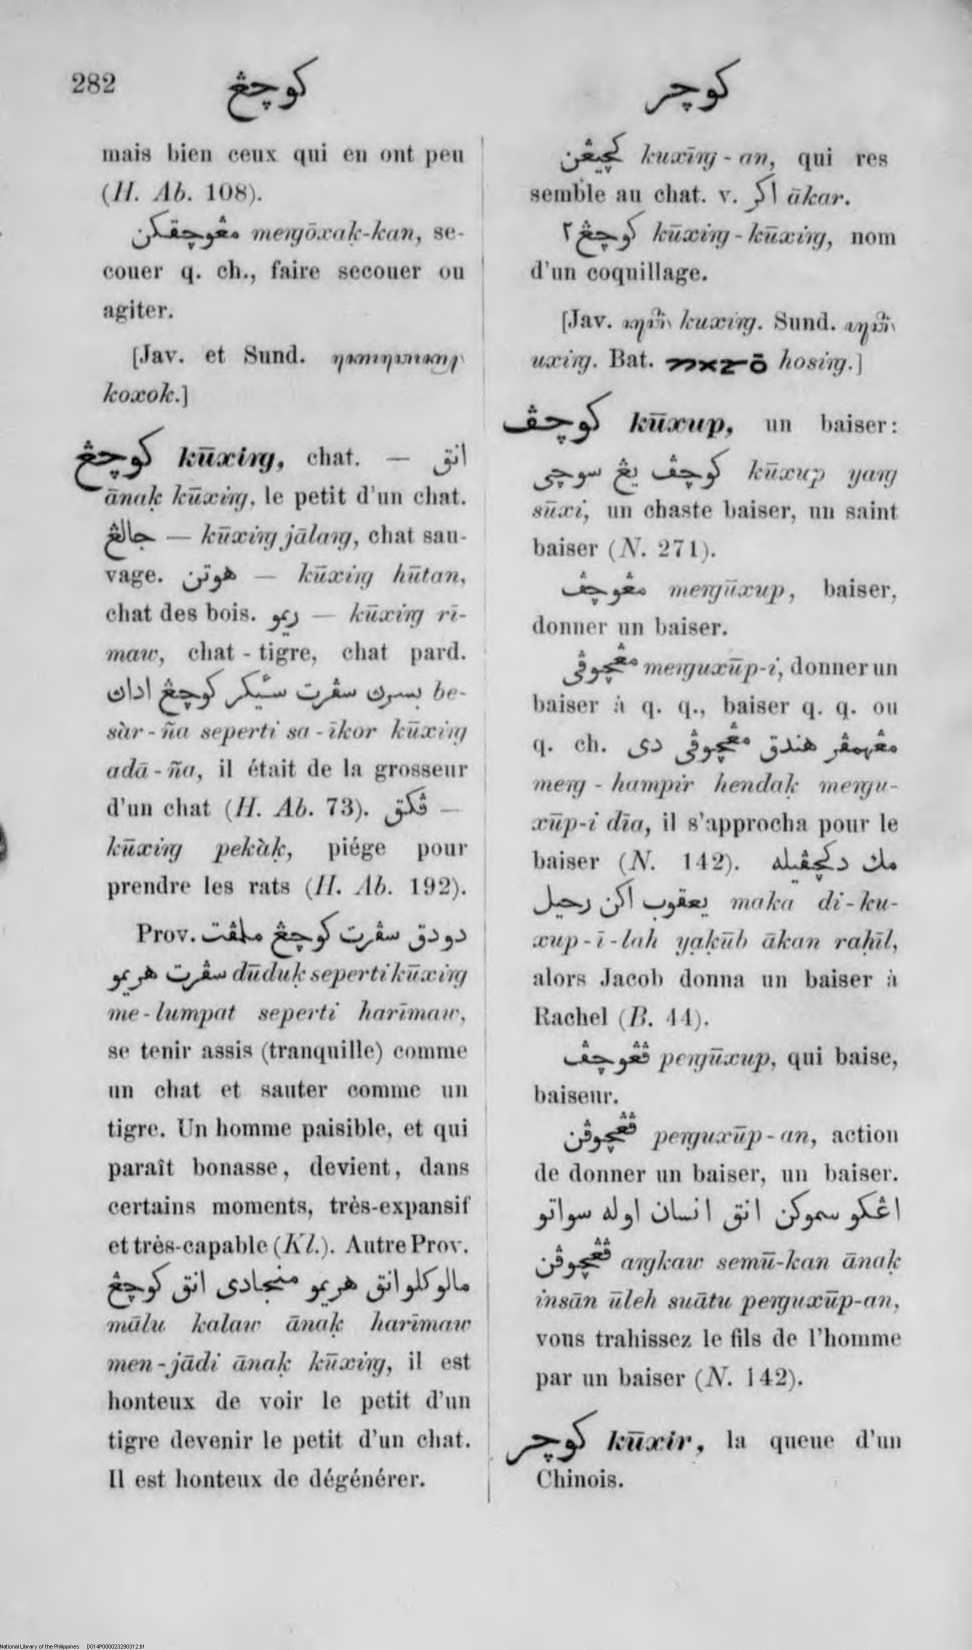 282
كوچڠ
كوچر
mais bien ceux qui en ont peu
(H. Ab. 108).
مڠوچقكن meṅōxaḳ-kan, se-
couer q. ch., faire secouer ou
agiter.
[Jav. et Sund.
koxok.]
كوچڠ kūxiṅg, chat. — انق
ānaḳ kūxiṅg, le petit d'un chat.
جالڠ — kūxiṅg jālaṅg, chat sau-
vage. هوتن — kūxiṅg hūtan,
chat des bois. ريمو — kūxiṅg rī-
maw, chat - tigre, chat pard.
بسرڽ سڤرت سئيكر كوچڠ اداڽ be-
sàr - ña seperti sa - īkor kūxiṅg
adā - ña, il était de la grosseur
d'un chat (H. Ab. 73). ڤكق —
kūxiṅg pekàḳ, piége pour
prendre les rats (H. Ab. 192).
Prov. دودق سڤرت كوچڠ ملمڤت
سڤرت هريمو dūduḳ seperti kūxiṅg
me - lumpat seperti harīmaw,
se tenir assis (tranquille) comme
un chat et sauter comme un
tigre. Un homme paisible, et qui
paraît bonasse, devient, dans
certains moments, très-expansif
et très-capable (Kl.). Autre Prov.
مالو كلو انق هريمو منجادى انق كوچڠ
mālu kalaw ānaḳ harīmaw
men - jādi ānaḳ kūxiṅg, il est
honteux de voir le petit d'un
tigre devenir le petit d'un chat.
Il est honteux de dégénérer.
كچيڠن kuxīṅg - an, qui res
semble au chat. v. اكر ākar.
كوچڠ٢ kūxiṅg - kūxiṅg, nom
d'un coquillage.
[Jav. kuxiṅg. Sund.
uxiṅg. Bat. hosiṅg.]
كوچڤ kūxup, un baiser:
كوچڤ يڠ سوچى kūxup yaṅg
sūxi, un chaste baiser, un saint
baiser (N. 271).
مڠوچڤ meṅgūxup, baiser,
donner un baiser.
مڠچوڤى meṅguxūp-i, donner un
baiser à q. q., baiser q. q. ou
q. ch. مڠهمڤر هندق مڠچوڤى دى
meṅg - hampir hendaḳ meṅgu-
xūp-i dīa, il s'approcha pour le
baiser (N. 142). مك دكچڤيله
يعقوب اكن رحيل maka di - ku-
xup - ī - lah yaḳūb ākan raḥīl,
alors Jacob donna un baiser à
Rachel (B. 44).
ڤڠوچڤ peṅgūxup, qui baise,
baiseur.
ڤڠچوڤن peṅguxūp - an, action
de donner un baiser, un baiser.
اڠكو سموكن انق انسان اوله سواتو
ڤڠچوڤن aṅgkaw semū-kan ānaḳ
insān ūleh suātu peṅguxūp-an,
vous trahissez le fils de l'homme
par un baiser (N. 142).
كوچر kūxir, la queue d'un
Chinois.
National Library of the Philippines